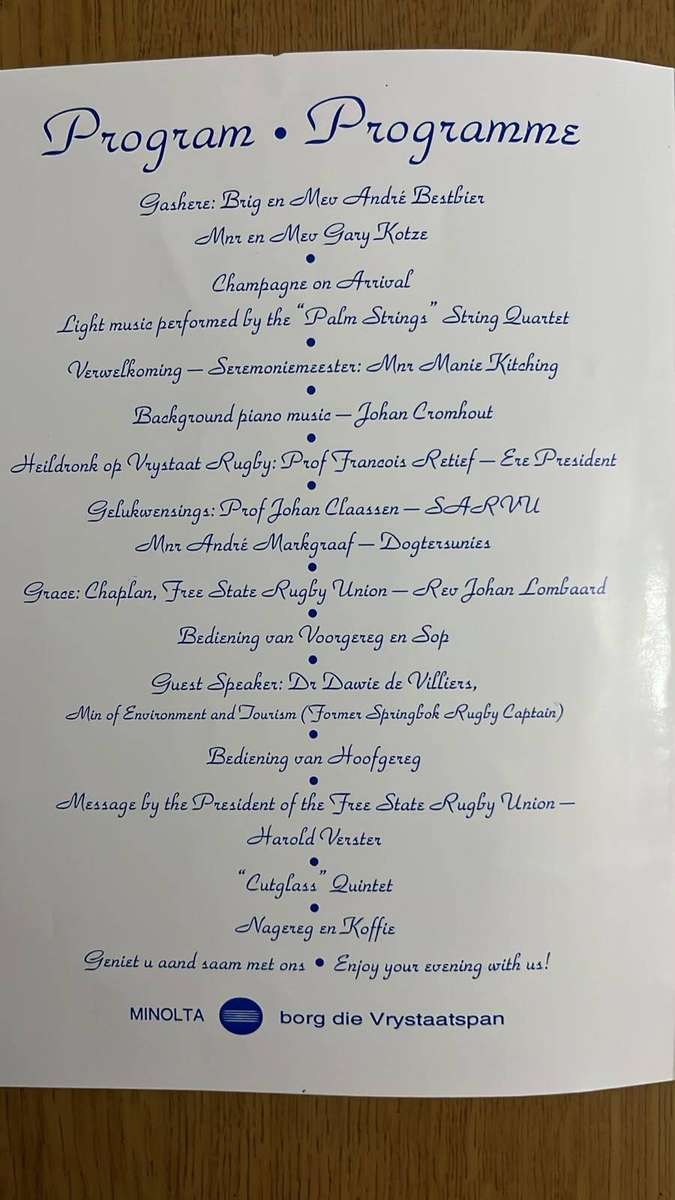 Program • Programme
Gashere: Brig en Mev André Bestbier
Mnr en Mev Gary Kotze
•
Champagne on Arrival
Light music performed by the "Palm Strings" String Quartet
•
Verwelkoming — Seremoniemeester: Mnr Manie Kitching
•
Background piano music — Johan Cromhout
•
Heildronk op Vrystaat Rugby: Prof Francois Retief — Ere President
•
Gelukwensings: Prof Johan Claassen — SARVU
Mnr André Markgraaf — Dogtersunies
•
Grace: Chaplan, Free State Rugby Union — Rev Johan Lombaard
•
Bediening van Voorgereg en Sop
•
Guest Speaker: Dr Dawie de Villiers,
Min of Environment and Tourism (Former Springbok Rugby Captain)
•
Bediening van Hoofgereg
•
Message by the President of the Free State Rugby Union —
Harold Verster
•
"Cutglass" Quintet
•
Nagereg en Koffie
Geniet u aand saam met ons • Enjoy your evening with us!
MINOLTA borg die Vrystaatspan